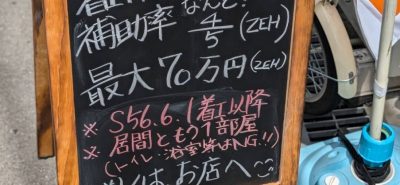 補助率 なんと! 4/5 (ZEH)
最大70万円(ZEH)
※ S56.6.1着工以降
※ 居間ともう1部屋
(トイレ・浴室等はNG!!)
くはお店へ